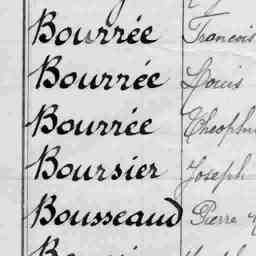 Bourrée Francois
Bourrée Louis
Bourrée
Boursier Joseph
Bousseaud Pierre